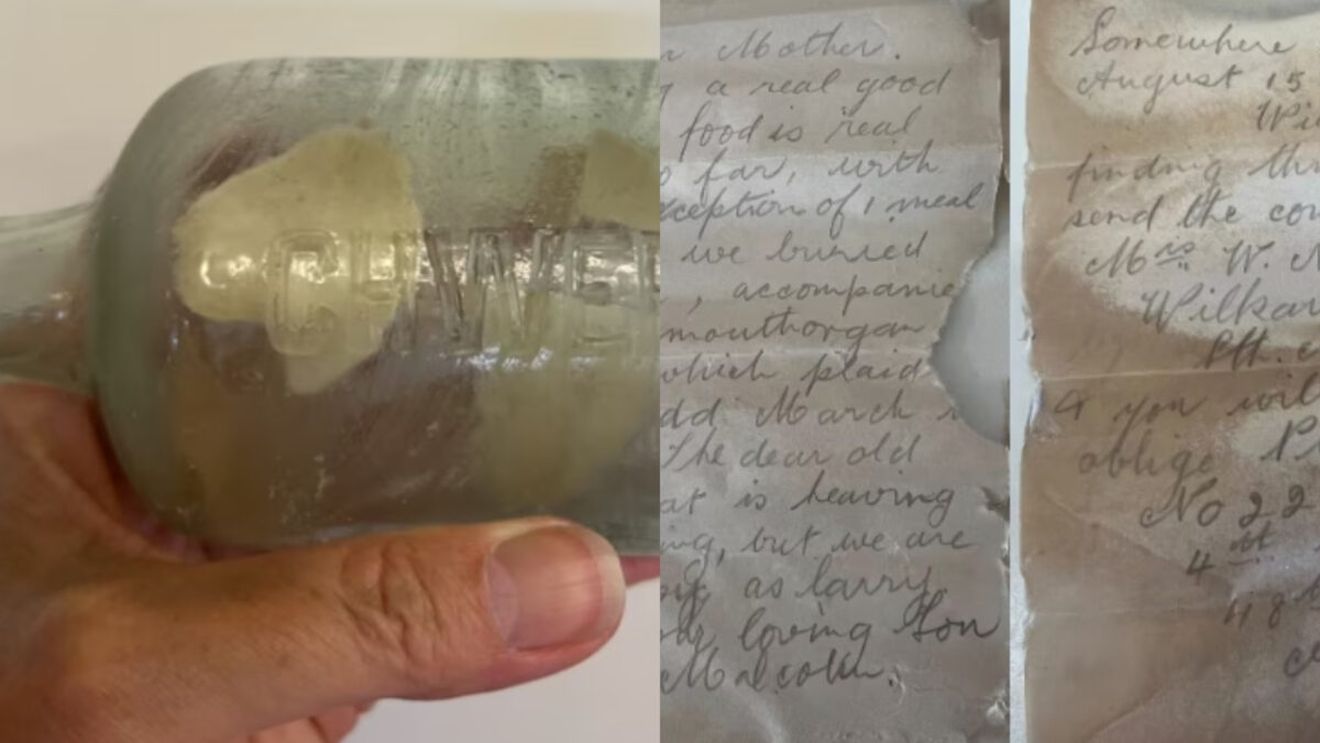 Mother.
a real good
food is real
far, with
ception of 1 meal
we buried
, accompanie
mouthorgan
which plaid
dd March
The dear old
at is heaving
ing, but we are
as larry
loving Son
Malcolm.
Somewhere
August 15
finding th
send the co
Mrs W. N
Wilkaw
Pth.
& you wil
oblige Pl
No 22
4
48